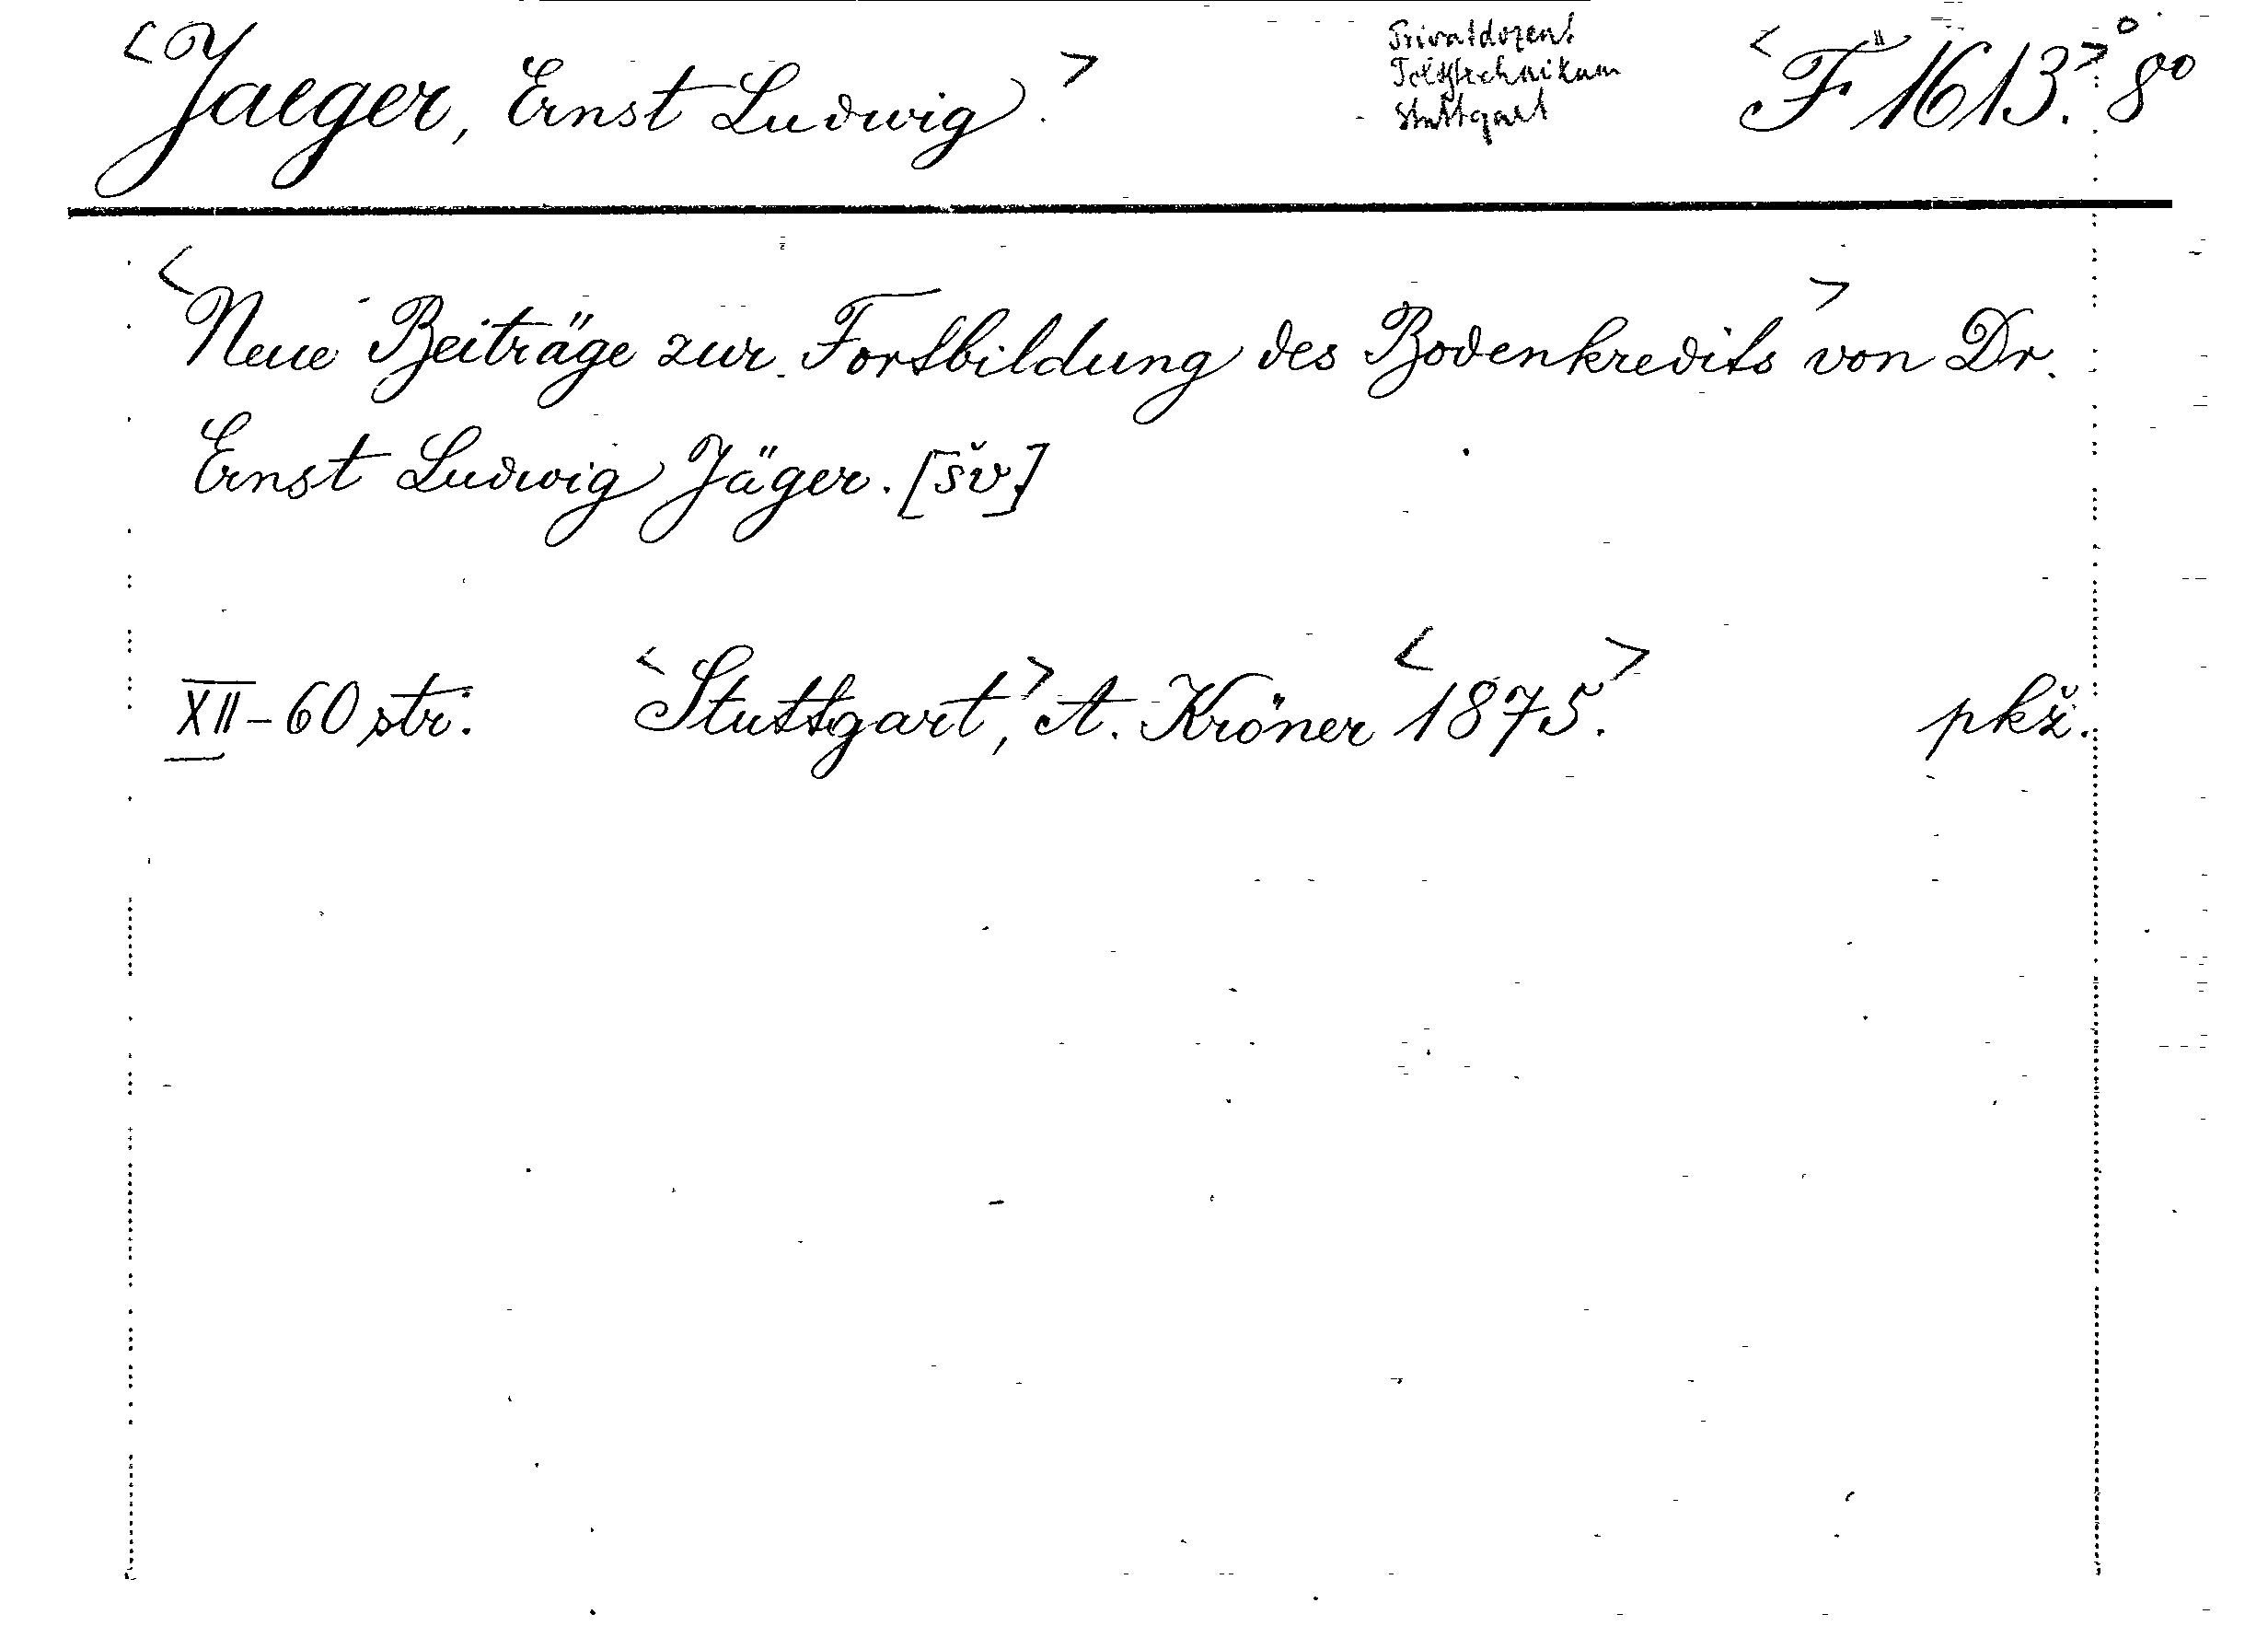 <Jaeger, Ernst Ludwig.>
Privatdozent
Polytechnikum
Stuttgart
<F 1613.> 8°
<Neue Beiträge zur Fortbildung des Bodenkredits> von Dr.
Ernst Ludwig Jäger. [šv.]
XII-60 str. <Stuttgart,> A. Kröner <1875.> pkž.